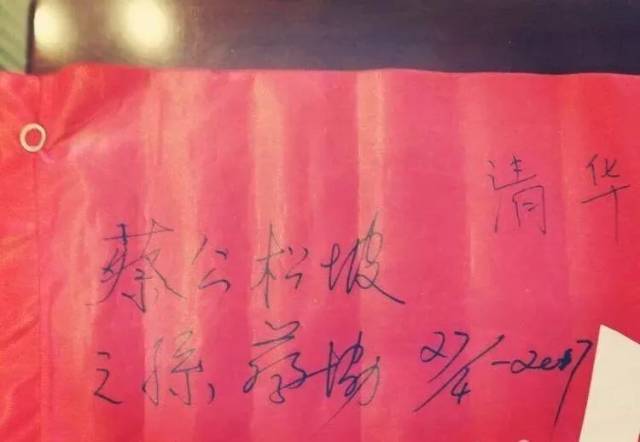 清华
蔡公松坡
之孫 蔡協 27/4-2017